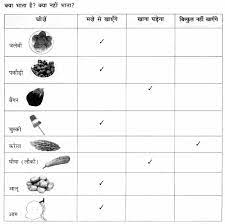 क्या भाता है? क्या नहीं भाता?
चीज़ें मज़े से खाएँगे खाना पड़ेगा बिल्कुल नहीं खाएँगे
जलेबी ✓
पकौड़ी ✓
बैंगन ✓
चुस्की ✓
करेला ✓
घीया (लौकी) ✓
आलू ✓
आम ✓